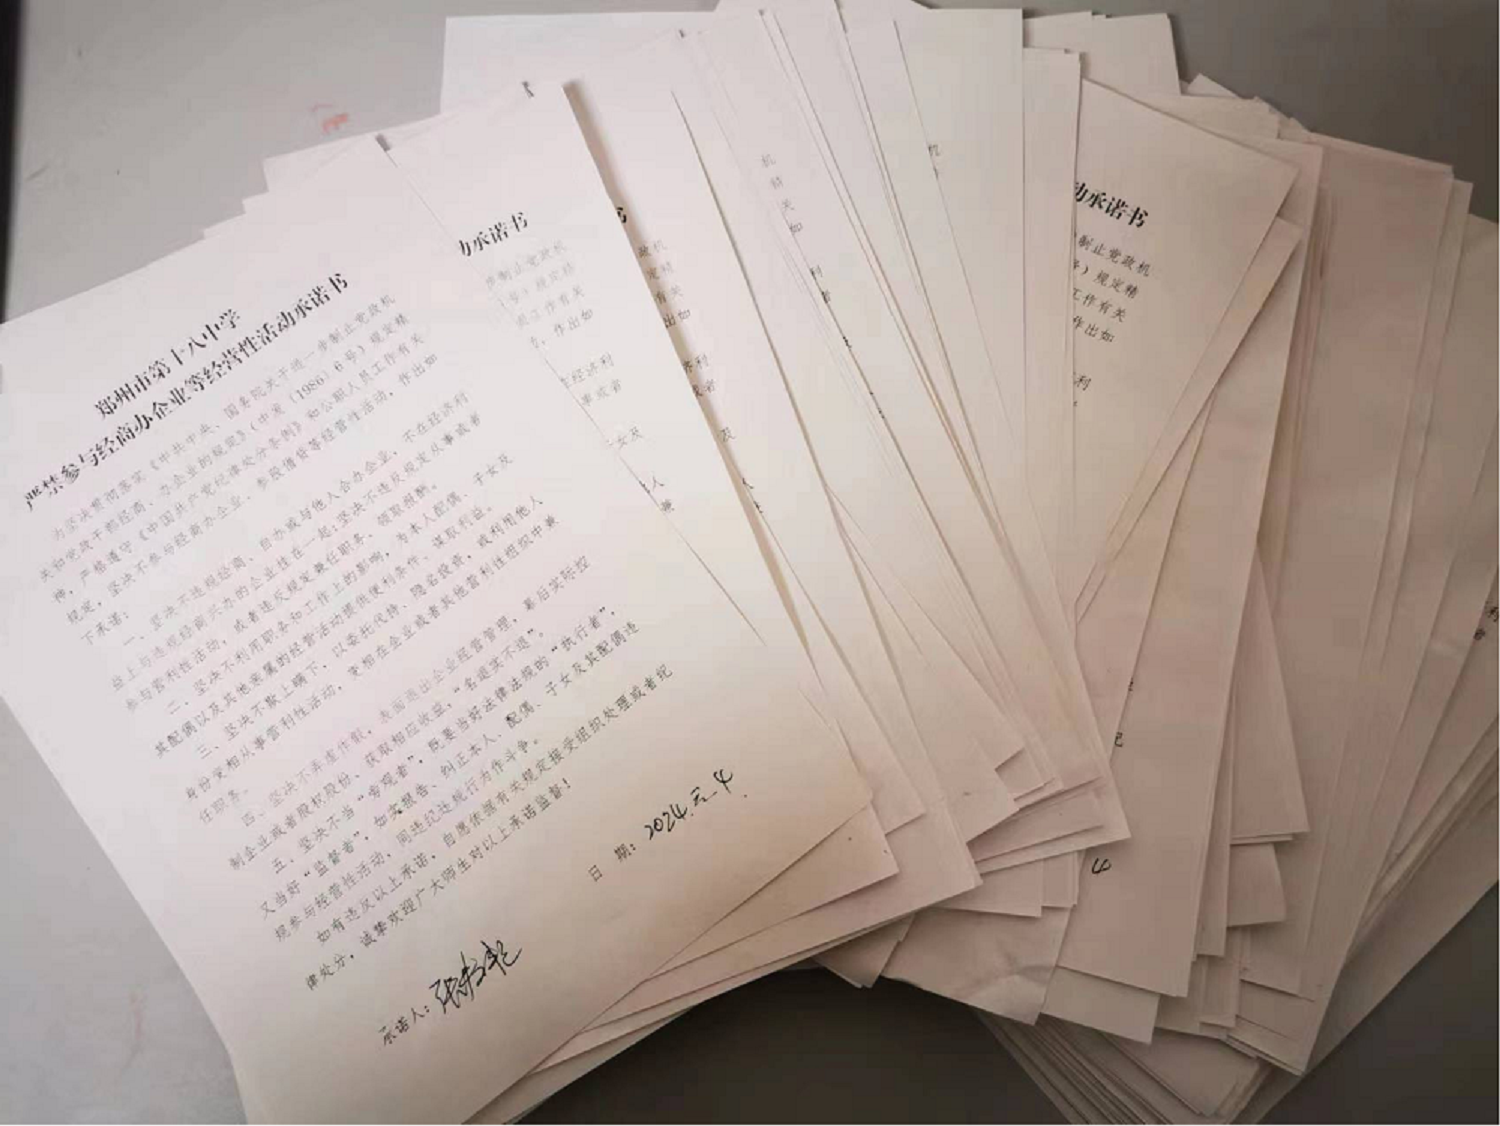 郑州市第十八中学
严禁参与经商办企业等经营性活动承诺书
为坚决贯彻落实《中共中央、国务院关于进一步制止党政机
关和党政干部经商、办企业的规定》（中发（1986）6号）规定精
神，严格遵守《中国共产党纪律处分条例》和公职人员工作有关
规定，坚决不参与经商办企业、参股借贷等经营性活动，作出如
下承诺：
一、坚决不违规经商、自办或与他人合办企业，不在经济利
益上与违规经商兴办的企业挂在一起；坚决不违反规定从事或者
参与营利性活动，或者违反规定兼任职务、领取报酬。
二、坚决不利用职务和工作上的影响，为本人配偶、子女及
其配偶以及其他亲属的经营活动提供便利条件、谋取利益。
三、坚决不欺上瞒下，以委托代持、隐名投资，或利用他人
身份变相从事营利性活动，变相在企业或者其他营利性组织中兼
任职务。
四、坚决不弄虚作假，表面退出企业经营管理，幕后实际控
制企业或者股权股份、获取相应收益，“名退实不退”。
五、坚决不当“旁观者”，既要当好法律法规的“执行者”，
又当好“监督者”，如实报告、纠正本人、配偶、子女及其配偶违
规参与经营性活动，同违纪违规行为作斗争。
如有违反以上承诺，自愿依据有关规定接受组织处理或者纪
律处分，诚挚欢迎广大师生对以上承诺监督！
承诺人：
日 期：2024.三.4.
动承诺书
制止党政机
号）规定精
工作有关
作出如
年经济利
事或者
子女及
人
兼
书
政机
定精
有关
出如
济利
或者
及
人
机
精
关
如
利
者
机
动承诺书
制止党政机
号）规定精
工作有关
作出如
利
纪
4
利
者